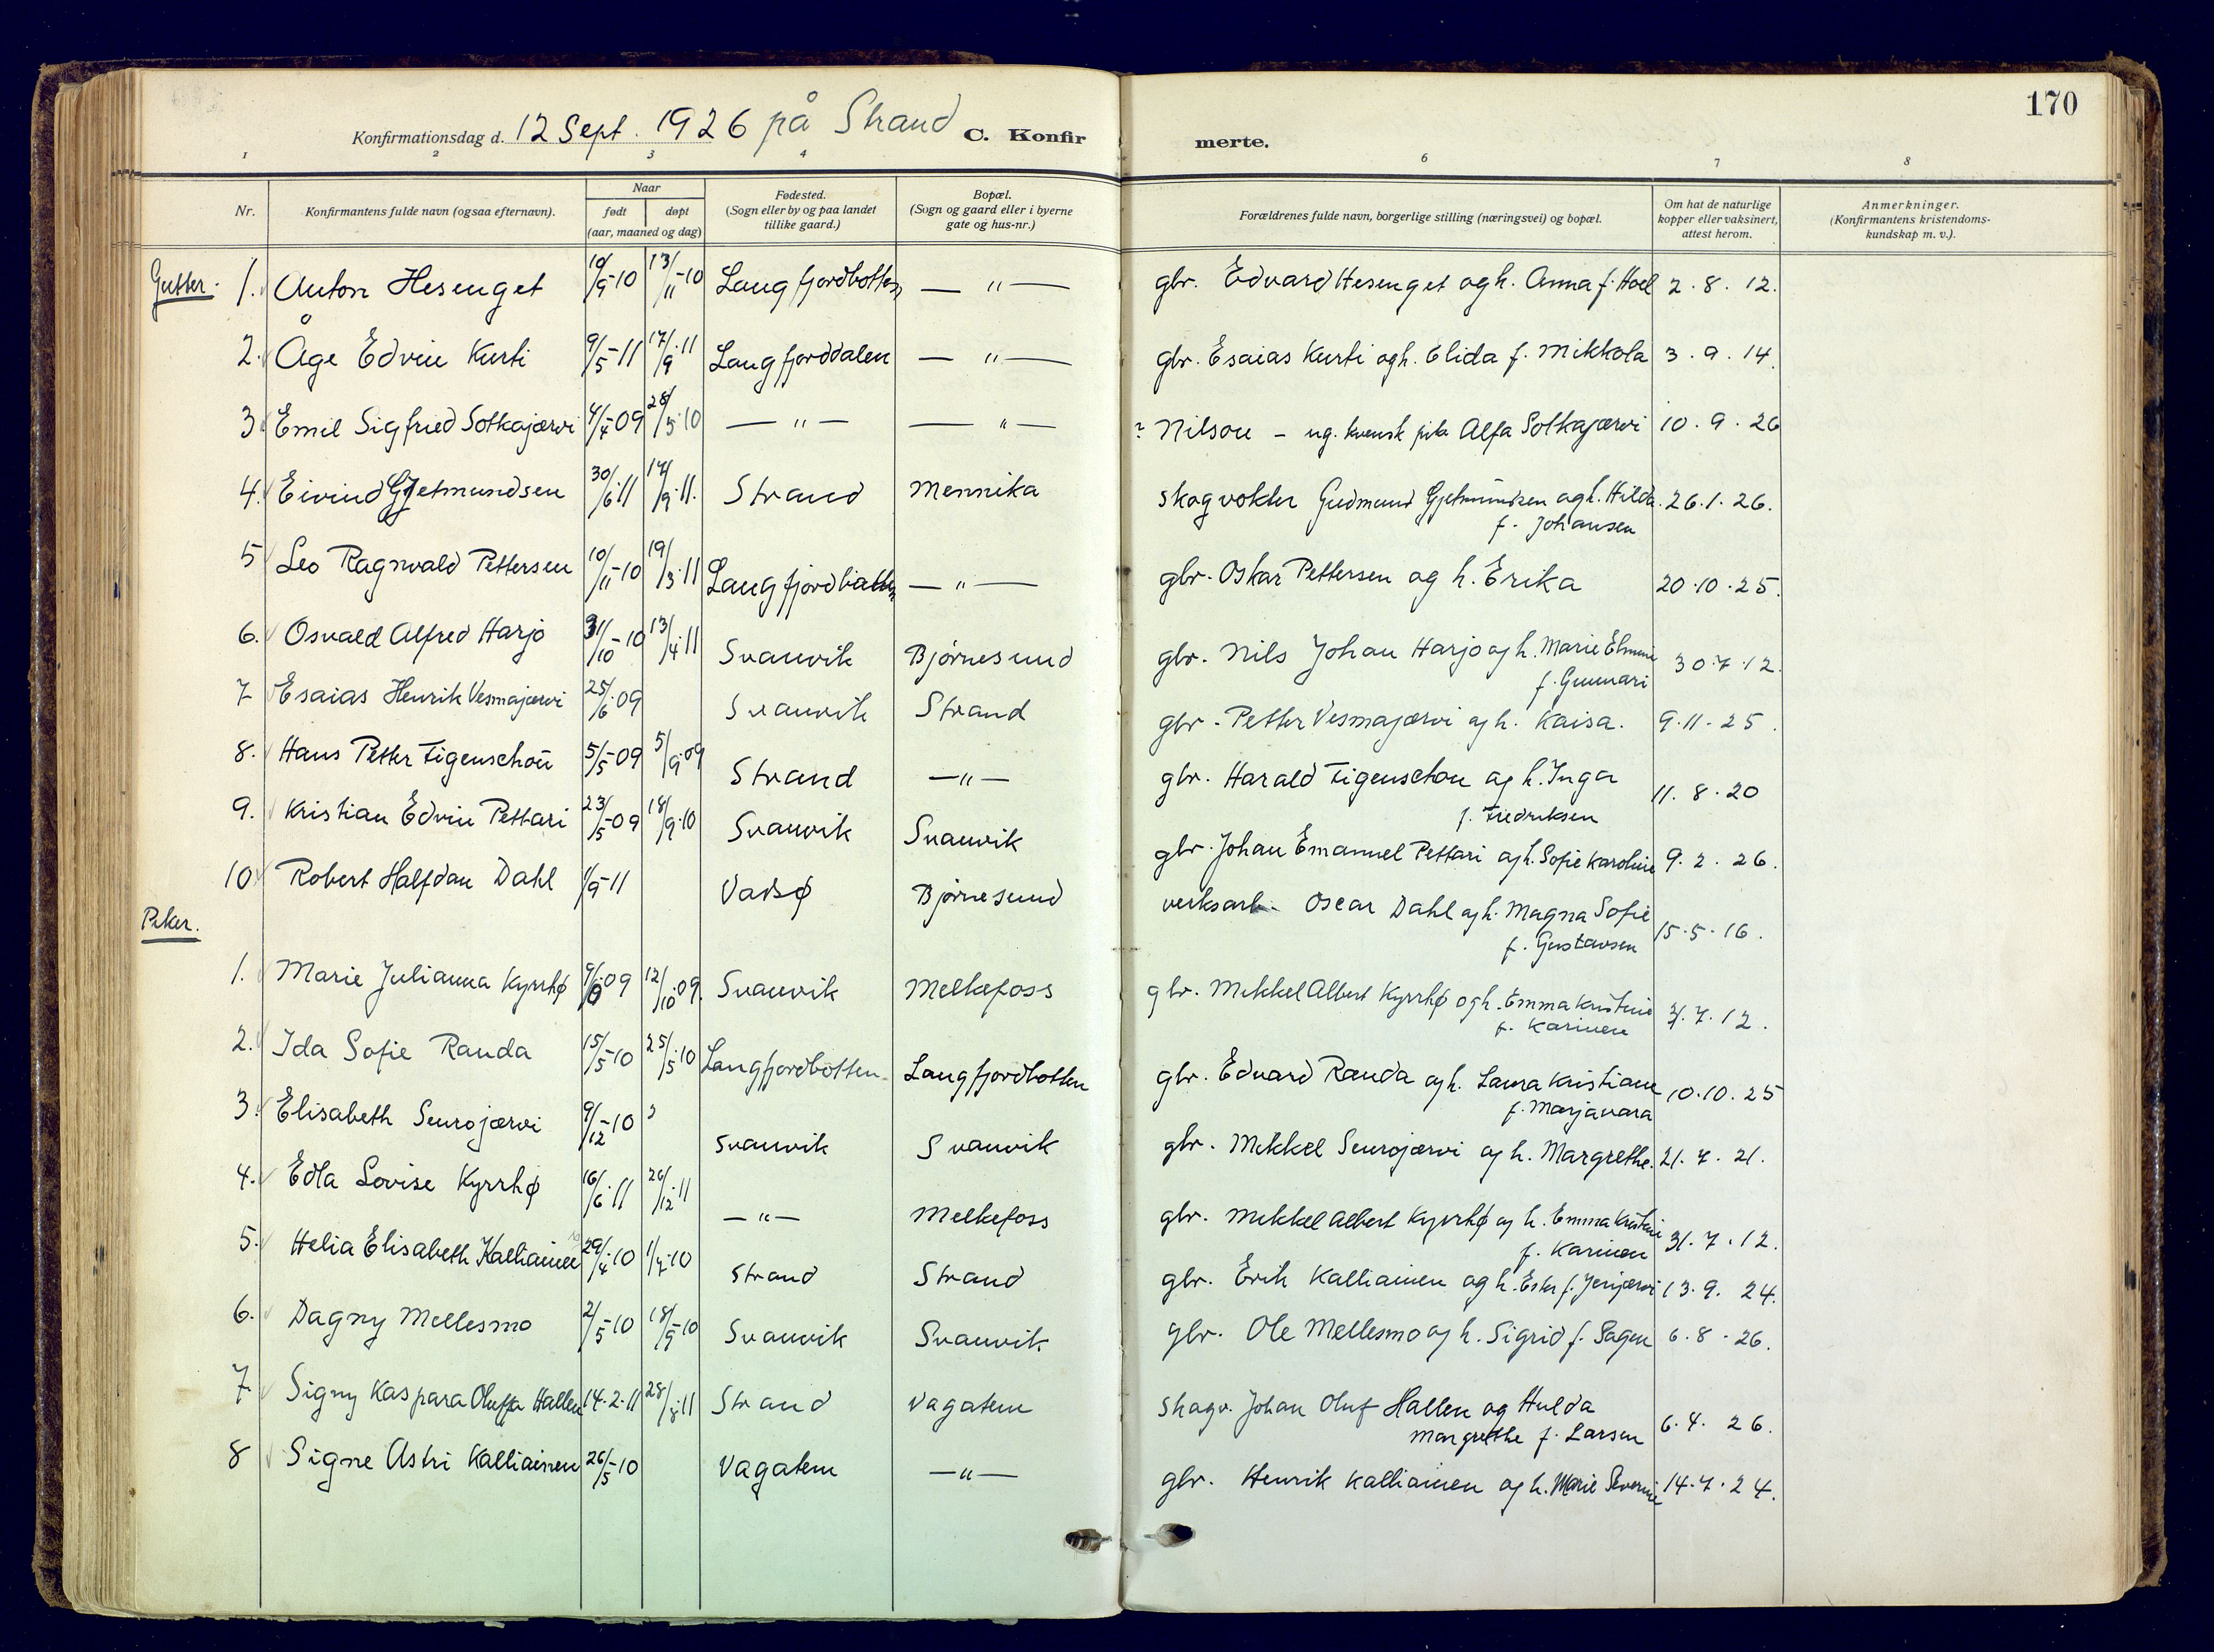 170
Konfirmationsdag d. 12 Sept. 1926 på Strand C. Konfirmerte.
1 2 3 4 6 7 8
Nr. Konfirmantens fulde navn (ogsaa efternavn). Naar født døpt (aar, maaned og dag) Fødested. (Sogn eller by og paa landet tillike gaard.) Bopæl. (Sogn og gaard eller i byerne gate og hus-nr.) Forældrenes fulde navn, borgerlige stilling (næringsvei) og bopæl. Om hat de naturlige kopper eller vaksinert, attest herom. Anmerkninger. (Konfirmantens kristendoms-kundskap m. v.).
Gutter.
1. Anton Hesenget 10/9-10 13/11-10 Langfjordbotten — " — gbr. Edvard Hesenget og h. Anna f. Hoel 2.8.12.
2. Åge Edvin Kurti 9/5-11 17/9.11 Langfjorddalen — " — gbr. Esaias Kurti og h. Elida f. Mikkola 3.9.14.
3. Emil Sigfried Sotkajærvi 4/4-09 28/5.10 — " — — " — ? Nilson – ug. kvensk pike Alfa Sotkajærvi 10.9.26
4. Eivind Gjetmundsen 30/6.11 17/9.11. Strand Mennika skogvokter Gudmund Gjetmundsen og h. Hilda f. Johansen 26.1.26.
5 Leo Ragnvald Pettersen 10/11-10 19/3.11 Langfjordbotten — " — gbr. Oskar Pettersen og h. Erika 20.10.25.
6. Osvald Alfred Harjo 31/10-10 13/4.11 Svanvik Bjørnesund gbr. Nils Johan Harjo og h. Marie Elmine f. Gunnari 30.7.12.
7 Esaias Henrik Vesmajærvi 25/6.09 Svanvik Strand gbr. Petter Vesmajærvi og h. Kaisa. 9.11.25.
8. Hans Petter Figenschou 5/5-09 5/9.09 Strand — " — gbr. Harald Figenschou og h. Inga f. Fredriksen 11.8.20
9. Kristian Edvin Pettari 23/5-09 18/9.10 Svanvik Svanvik gbr. Johan Emanuel Pettari og h. Sofie Karoline 9.2.26.
10. Robert Halfdan Dahl 1/9-11 Vadsø Bjørnesund verksarb. Oscar Dahl og h. Magna Sofie f. Gustavsen 15.5.16.
Piker.
1. Marie Julianna Kyrrhø 12/10.09. Svanvik Melkefoss gbr. Mikkel Albert Kyrrhø og h. Emma Kristine f. Karinen 31.7.12.
2. Ida Sofie Randa 15/5-10 25/5.10 Langfjordbotten Langfjordbotten gbr. Edvard Randa og h. Laura Kristiane f. Marjavara 10.10.25
3. Elisabeth Seurojærvi 9/12-10 ? Svanvik Svanvik gbr. Mikkel Seurojærvi og h. Margrethe. 21.7.21.
4. Edla Lovise Kyrrhø 16/6.11 26/12.11 — " — Melkefoss gbr. Mikkel Albert Kyrrhø og h. Emma Kristine f. Karinen 31.7.12.
5. Helia Elisabeth Kalliainen 29/4.10 1/7.10 Strand Strand gbr. Erik Kalliainen og h. Ester f. 13.9.24.
6. Dagny Mellesmo 2/5-10 18/9-10 Svanvik Svanvik gbr. Ole Mellesmo og h. Sigrid f. Sagen 6.8.26.
7 Signy Kaspara Oluffa Hallen 14.2.11 28/8.11 Strand Vagatem skogv. Johan Oluf Hallen og Hulda Margrethe f. Larsen 6.4.26.
8 Signe Astri Kalliainen 26/5-10 Vagatem — " — gbr. Henrik Kalliainen og h. Marie Severine 14.7.24.